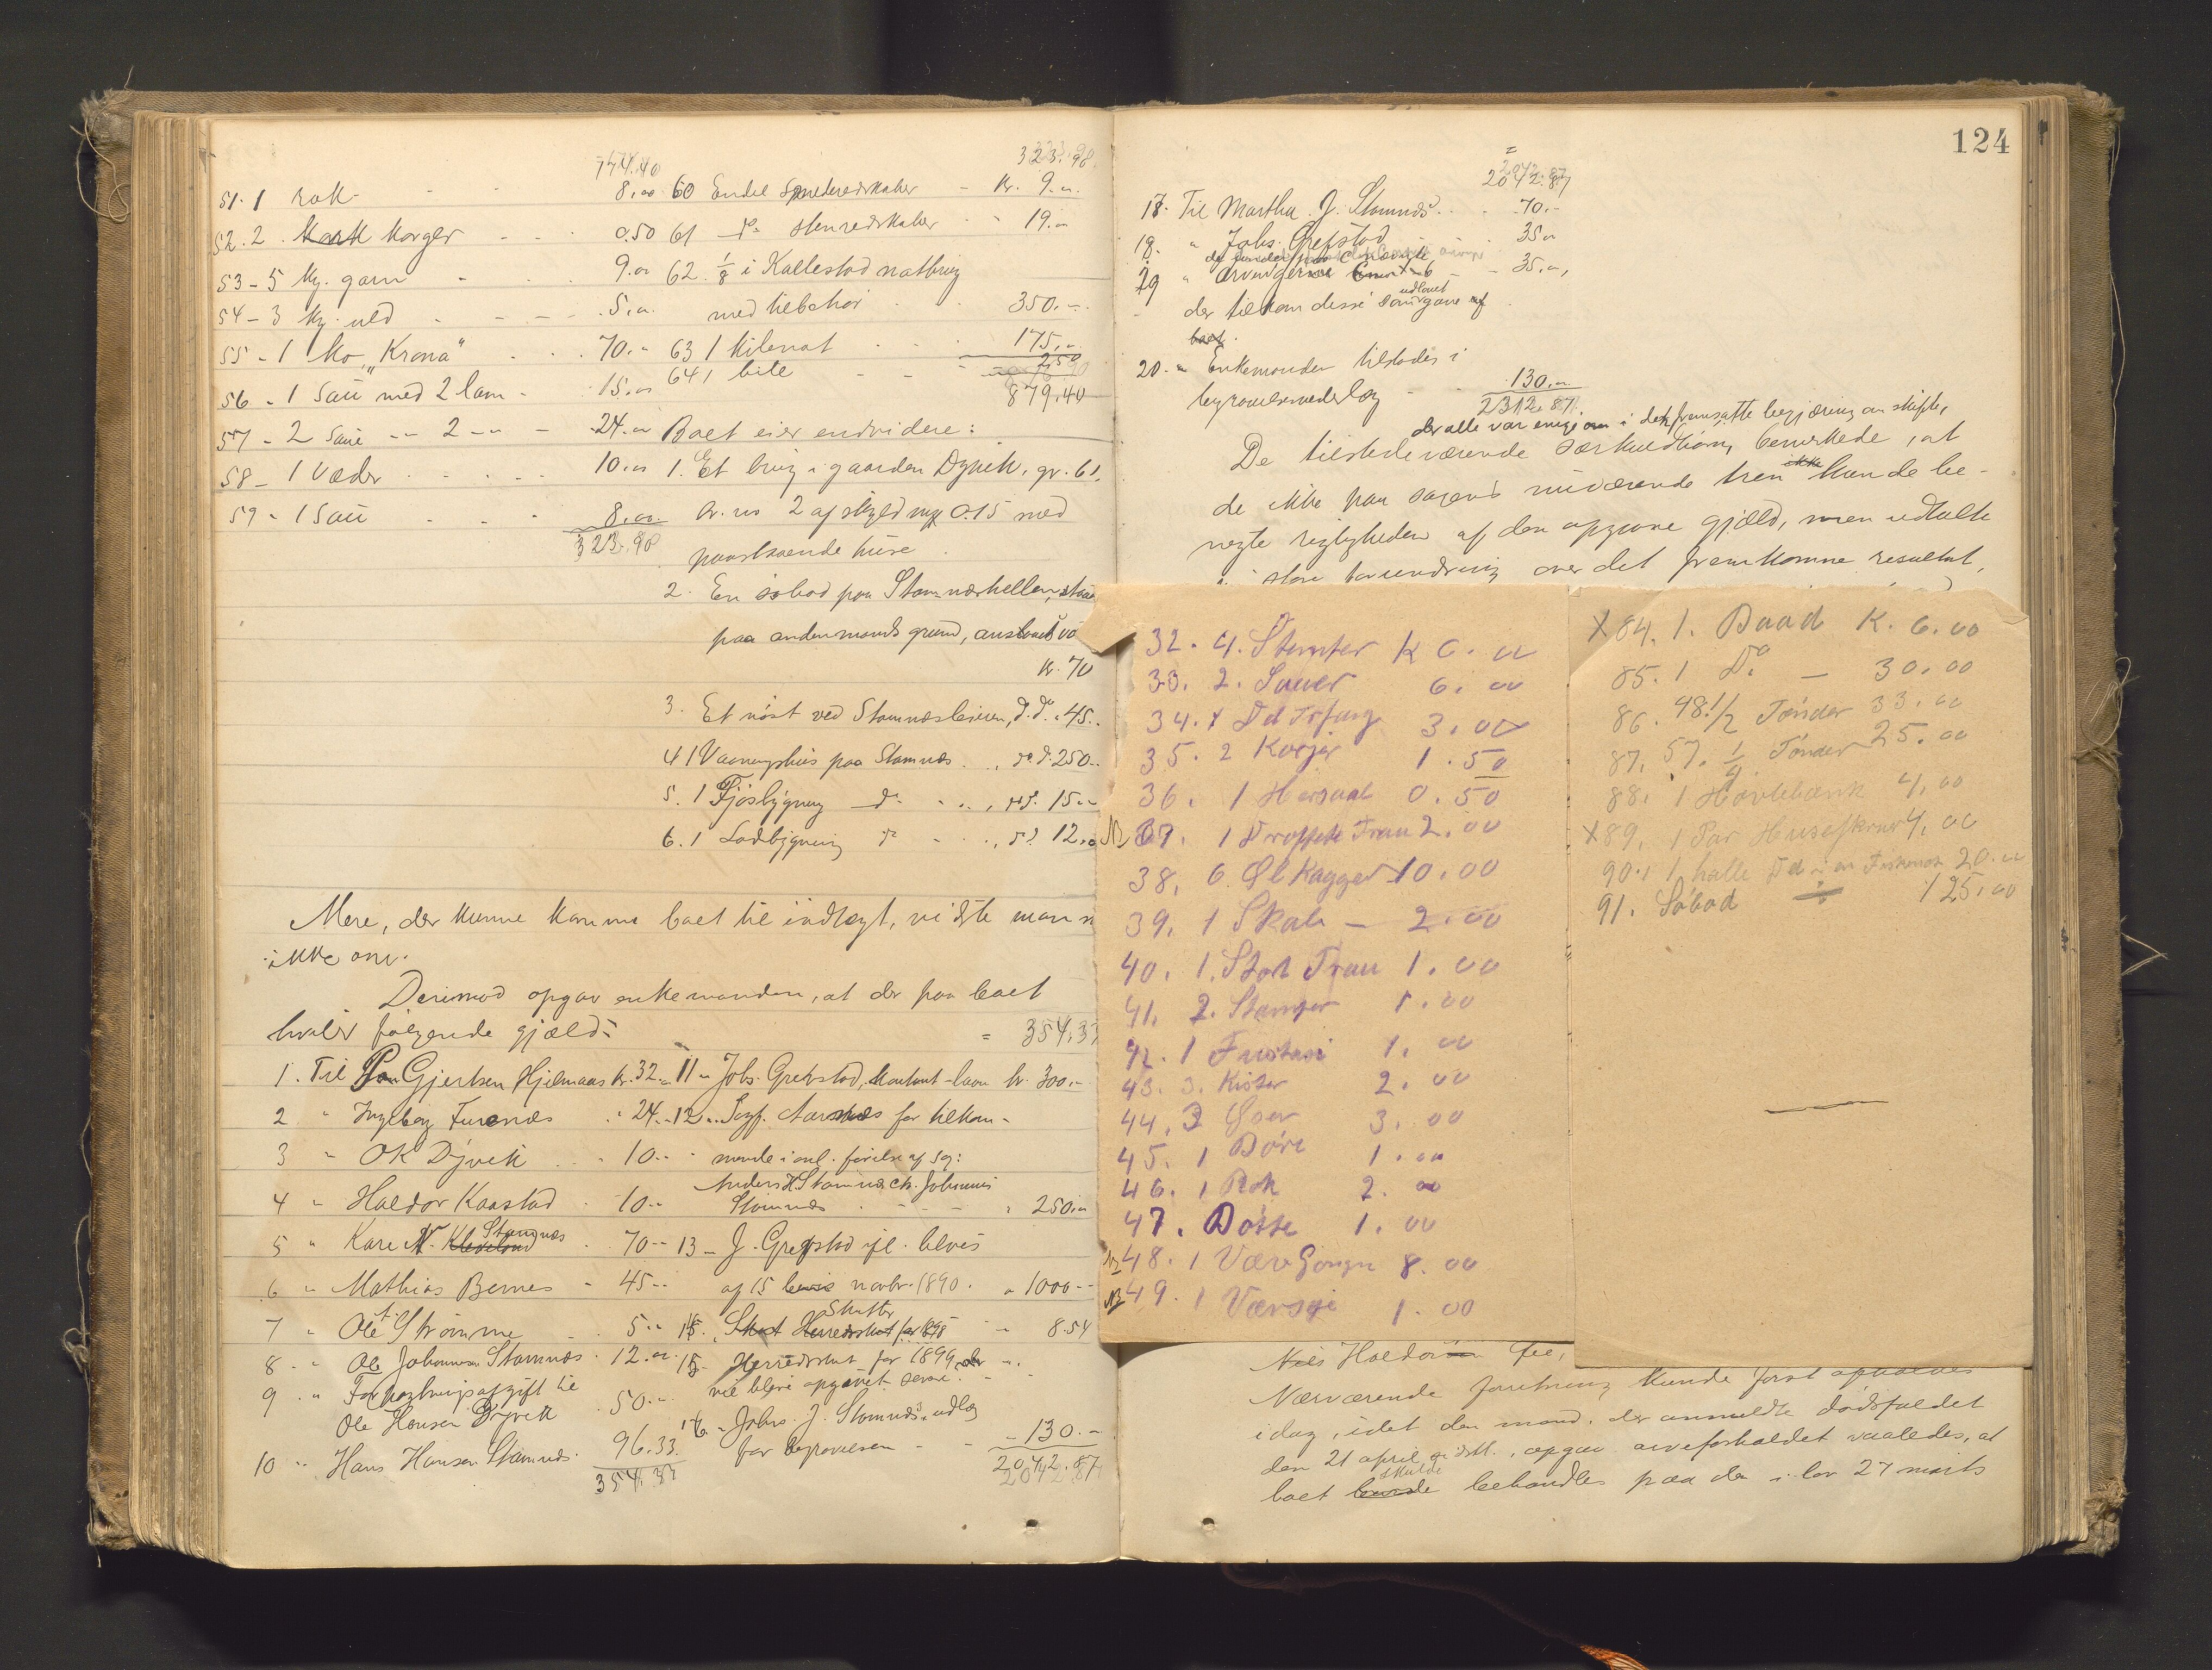 744.40
51. 1 rok - - 8,00
52. 2 korger - - - 0.50
53 - 5 kg. garn - - - 9.00
54 - 3 kg. uld - - - 5,00
55 - 1 ko, "Krona" - - 70.-
56 - 1 sau med 2 lam - 15.00
57 - 2 saue -"- 2 -"- - 24.00
58 - 1 Væder - - - 10.00
59 - 1 sau - - - 8.00
323.90
323.90
60 Endel - kr. 9.00
61 do - - 19.00
62. 1/8 i Kallestad notbrug
med tilbehør - - 350.-
63 1 kilenot - - - 175.-
64 1 bile - - - 2.50
879,40
Boet eier endvidere:
1. Et brug i gaarden Dyvik, gr. 61,
br. no 2 af skyld mrk 0.15 med
paastaaende huse.
2. En søbod paa Stamneshellen,
paa andenmands grund,
kr. 70
3. Et nøst ved Stamnesleiren, d. do. 45.-
4 1 Vaaningshus paa Stamnes - , do. do. 250.-
5. 1 Fjøsbygning do - - , 15.-
6. 1 Ladbygning do - - , 12.-
Mere, der kunne komme boet til indtægt, vidste man
ikke om.
Derimod opgav enkemanden, at der paa boet
hviler følgende gjæld:
1. Til Gjertsen Hjelmaas kr. 32.-
2 " Ingeborg Furenes " 24.-
3 " OK Dyvik - - 10.-
4 " Haldor Kaastad - 10.-
5 " Kari N. Stamnes - 70.-
6 " Mathias Bernes - 45.-
7 " Ole Strømme - 5.-
8 - " Ole Johannesen Stamnes - 12.00
9 - " Forpagtningsafgift til
Ole Hansen Dyvik - 50.-
10 " Hans Hansen Stamnes - 96.33
354.33
= 354.33
11 - Johs. Grefstad, kontant laan kr. 300.-
12 - for tilkom-
mende i anl. førelse af sag:
Anders H. Stamnes ctr. Johannes
Stamnes - - - " 250.00
13 - J. Grefstad ifl. bevis
af 15 novbr. 1890. " 1000.-
Skatter for 1898 - 8.54
15 Herredsskat for 1899, der
vil blive opgivet senere. - -
16 - Johs. J. Stamnes, udlæg
for begravelsen - - 130.-
2042.87
2042.87
124
2042.87
17. Til Martha J. Stamnes - - 70.-
18. " Johs. Grefstad - - 35.00
19 " - - 35.00
der tilkom disse som udlovet gave af
boet.
20 - " Enkemanden tilstodes i
begravelsesvederlag - - 130.00
2312.87
der alle var enige i den fremsatte begjæring om skifte,
De tilstedeværende særkuldbørn bemerkede, at
de ikke paa sagens nuværende trin kunde be-
negte rigtigheden af den opgivne gjæld, men udtalte
sin store forundring over det fremkomne resultat,
32. 4. Stamper K 6.00
33. 2. Sauer 6.00
34. 3.00
35. 2 Korjer 1.50
36. 1 0.50
NB 37. 1 2.00
38. 6 Øl Kagger 10.00
39. 1 Skab - 2.00
40. 1. Stor Trau 1.00
41. 2. Stamper 1.00
42. 1 1.00
43. 3. Kister 2.00
44. 3 3.00
45. 1 1.00
46. 1 Rok 2.00
47. 1.00
NB 48. 1 8.00
NB 49. 1 1.00
X 84. 1. Baad K. 6.00
85. 1 Do - 30.00
86. 48. 1/2 Tønder 33.00
87. 57. 1/4 Tønder 25.00
88. 1 Høvlebænk 4.00
X 89. 1 Par 4.00
90. 1 halv Del i en Fiskenot 20.00
91. Søbod 125.00
Nils Haldorsen
Nærværende forretning kunde først afholdes
idag, idet den mand, der anmeldte dødsfaldet
den 21 april sidstl., opgav arveforholdet saaledes, at
boet skulde behandles paa den i lov 27 marts